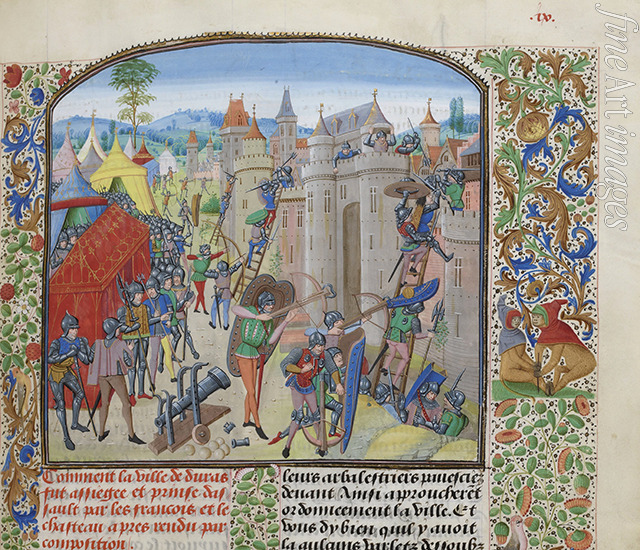 iv.
fineArt images
Comment la ville de duras
fut assiegee et prinse das
sault par les francois et le
chasteau apres rendu par
composition
leurs arbalestriers puiesciez
deuant Ainsi aproucherent
ordonneement la ville. Et
vous dy bien quil y auoit
la aulcuns varletz dessoubz